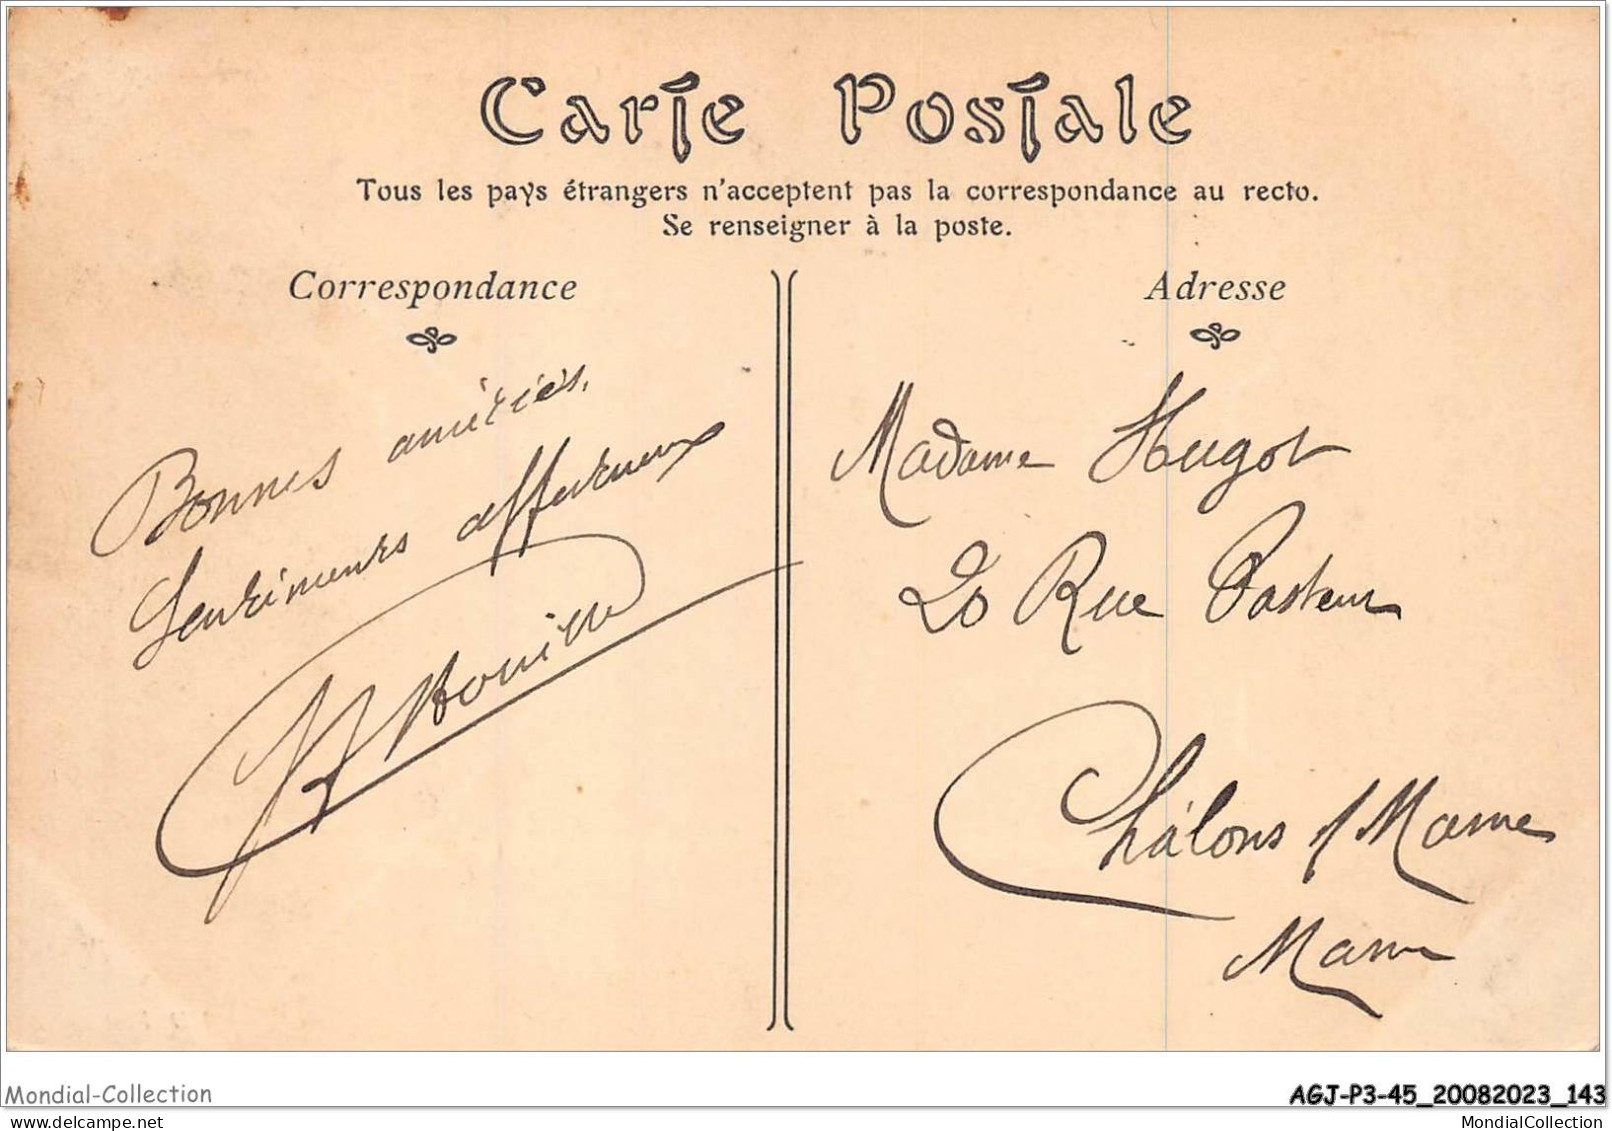 Carte Postale
Tous les pays étrangers n'acceptent pas la correspondance au recto.
Se renseigner à la poste.
Correspondance
Bonnes amitiés.
Sentiments affectueux
Adresse
Madame Hugot
20 Rue Pasteur
Châlons s/ Marne
Marne
Mondial-Collection
AGJ-P3-45_20082023_143
delcampe.net
MondialCollection